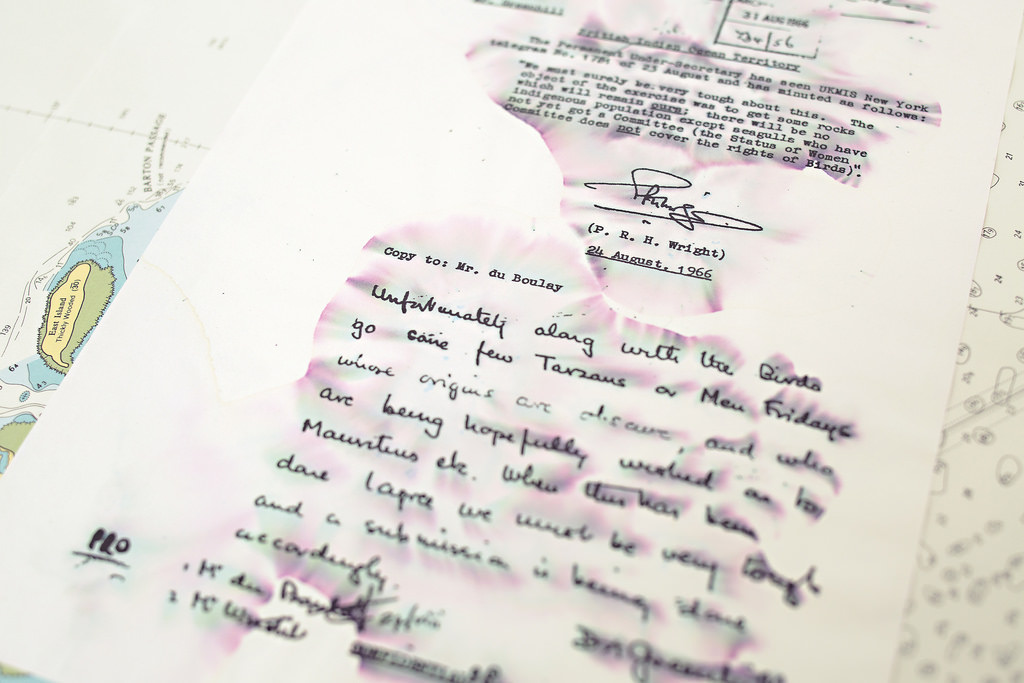 Mr. Greenhill
31 AUG 1966
British Indian Ocean Territory
The Permanent Under-Secretary has seen UKMIS New York
telegram No. 1781 of 23 August and has minuted as follows:
"We must surely be very tough about this. The
object of the exercise was to get some rocks
which will remain ours; there will be no
indigenous population except seagulls who have
not yet got a Committee (the Status of Women
Committee does not cover the rights of Birds)".
(P. R. H. Wright)
24 August, 1966
Copy to: Mr. du Boulay
Unfortunately along with the Birds
go some few Tarzans or Men Fridays
whose origins are obscure, and who
are being hopefully wished on to
Mauritius etc. When this has been
done I agree we must be very tough
and a submission is being done
accordingly.
PRO
1 Mr du Boulay
2 Mr
BARTON PASSAGE
East Island
Thickly Wooded (30)